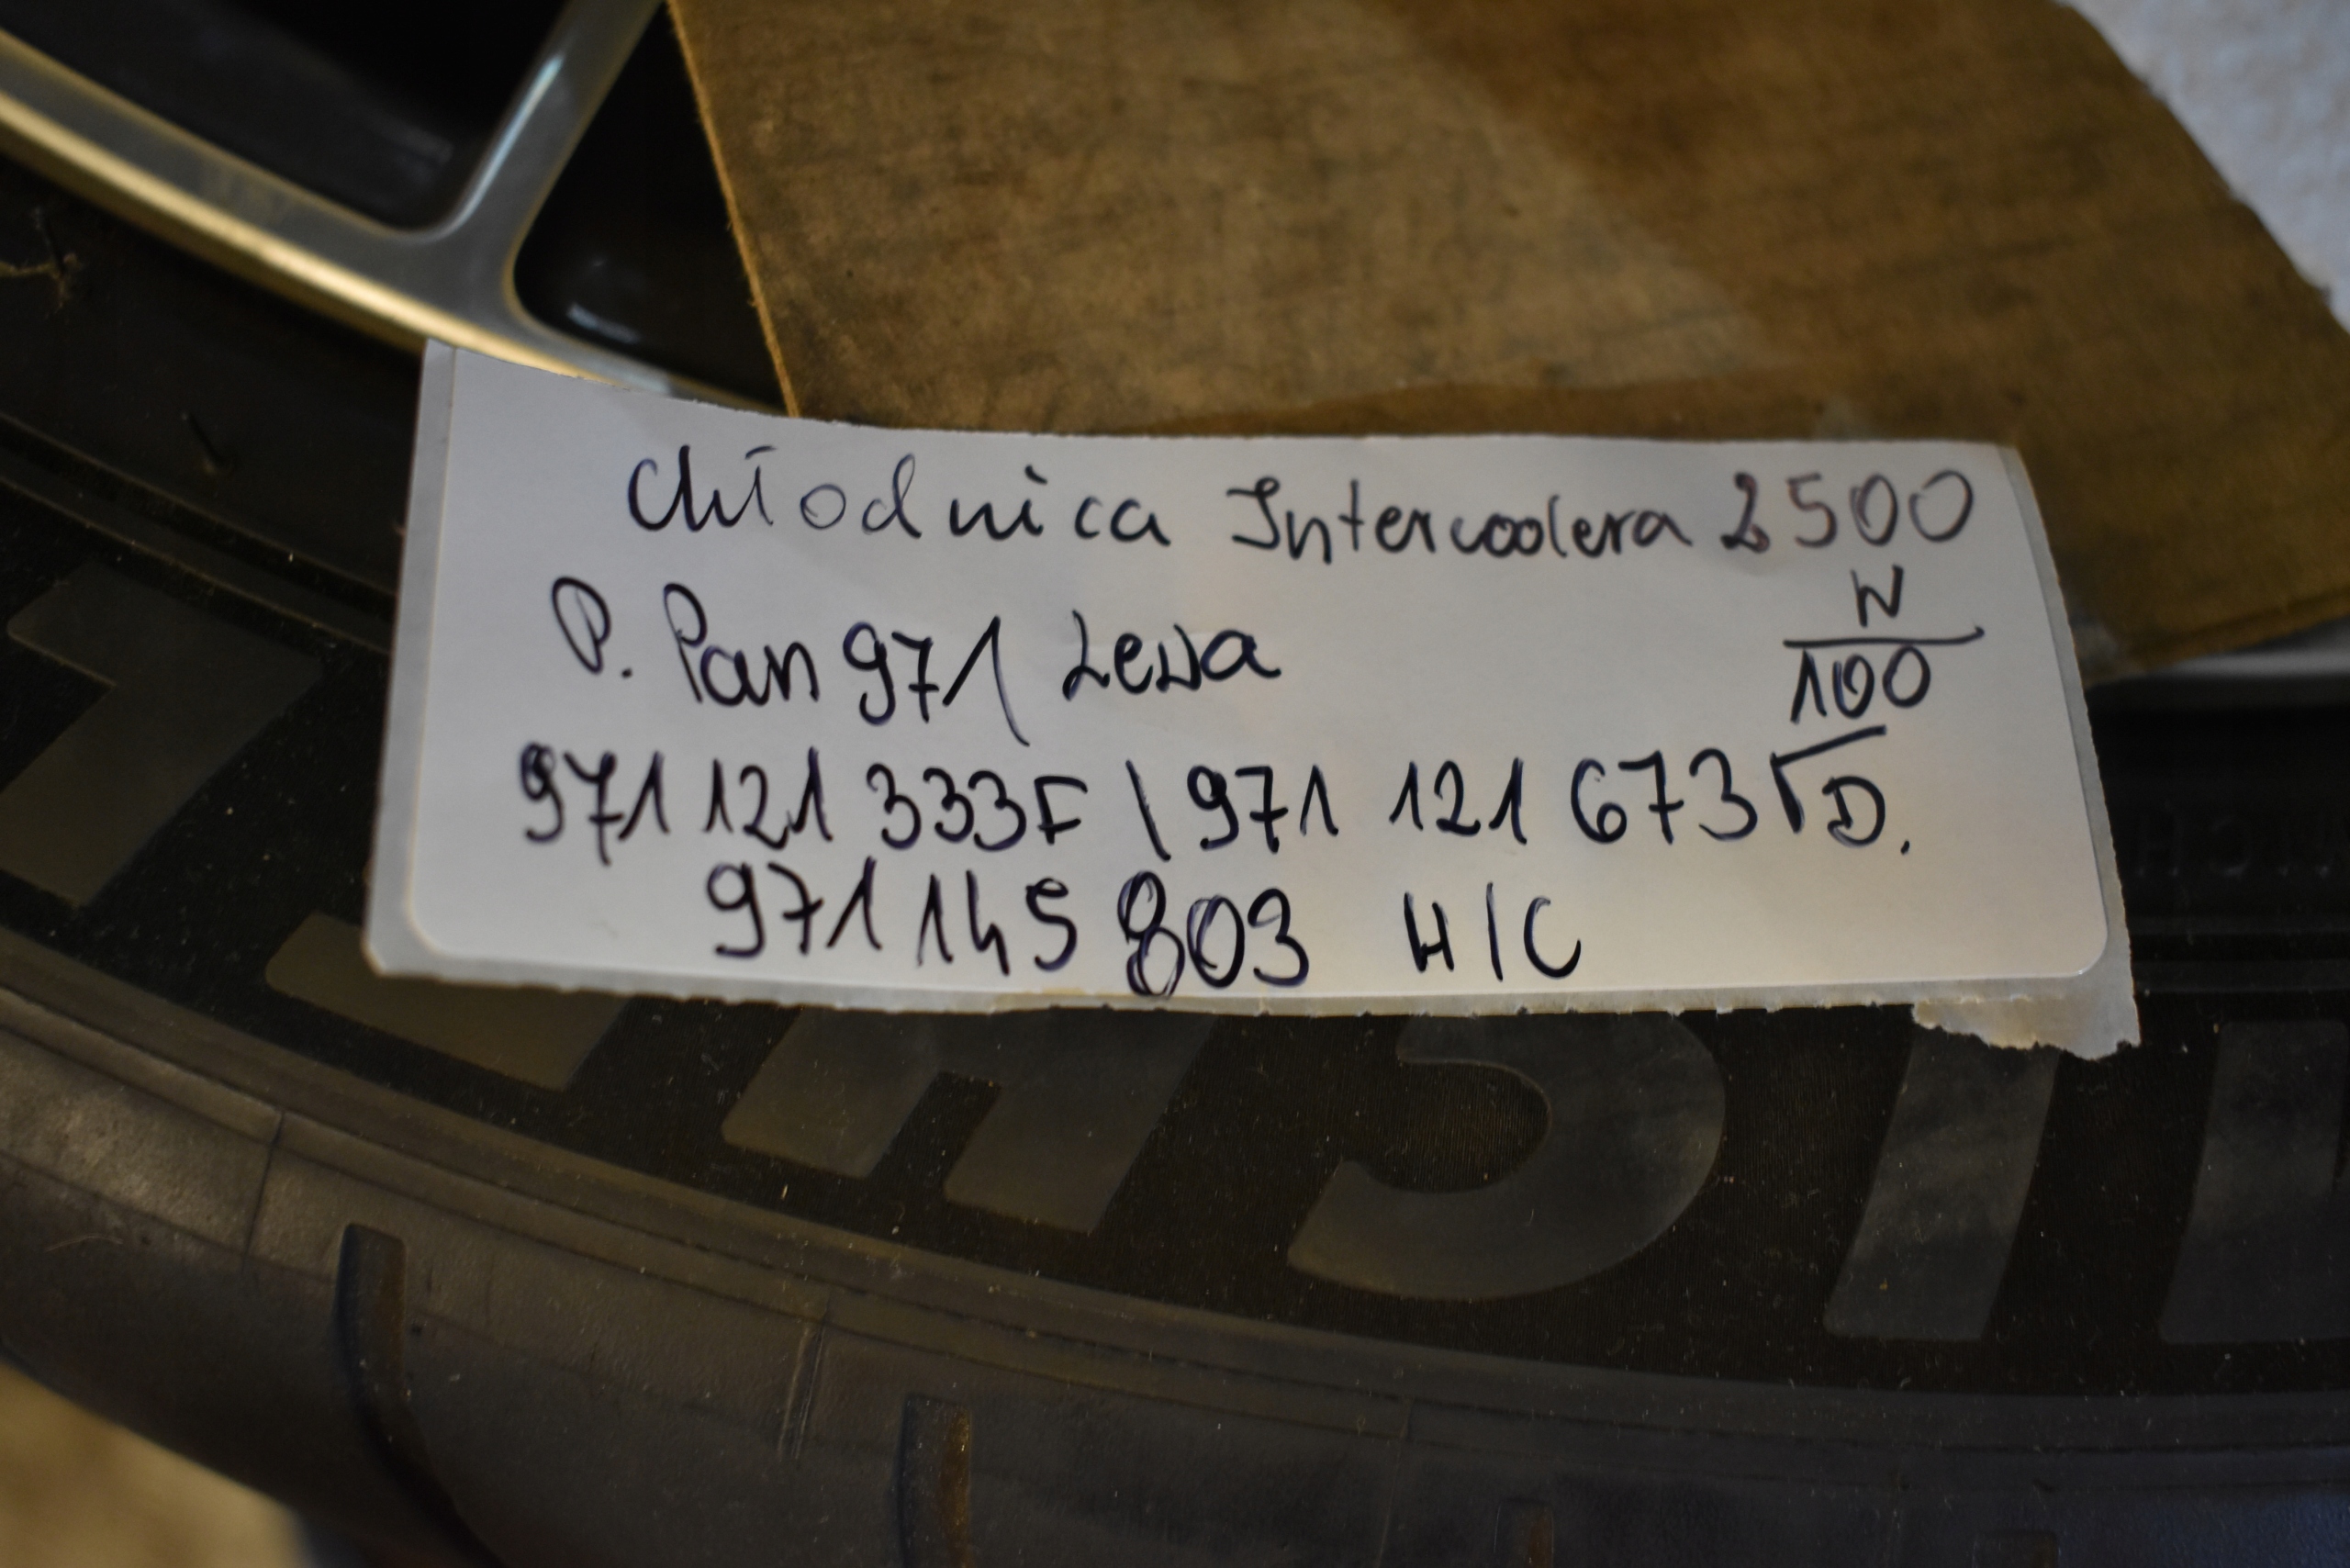 Chłodnica Intercoolera 2500
N
P. Pan 971 Lewa
100
971 121 333F \ 971 121 673 D.
971 145 803 H/C